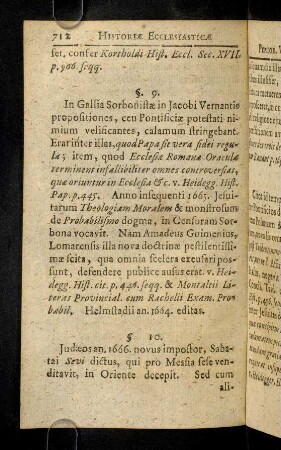 712 HISTORIÆ ECCLESIASTICÆ
set, confer Kortholdi Hist. Eccl. Sec. XVII.
p. 906. seqq.
§. 9.
In Gallia Sorbonistæ in Jacobi Vernantie
propositiones, ceu Pontificiæ potestati ni-
mium velificantes, calamum stringebant.
Erat inter illas, quod Papa sit vera fidei regu-
la; item, quod Ecclesiæ Romanæ Oracula
terminent infallibiliter omnes controversias,
quæ oriuntur in Ecclesia &c. v. Heidegg. Hist.
Pap. p. 445. Anno insequenti 1665. Jesui-
tarum Theologiam Moralem & monstrosum
de Probabilismo dogma, in Censuram Sor-
bona vocavit. Nam Amadeus Guimenius,
Lomarensis illa nova doctrinæ pestilentissi-
mæ scita, qua omnia scelera excusari pos-
sunt, defendere publice ausus erat. v. Hei-
degg. Hist. cit. p. 446. seqq. & Montaltii Li-
teras Provincial. cum Rachelii Exam. Pro-
babil. Helmstadii an. 1664. editas.
§ 10.
Judæos an. 1666. novus impostor, Saba-
tai Sevi dictus, qui pro Messia sese ven-
ditavit, in Oriente decepit. Sed cum
ali-